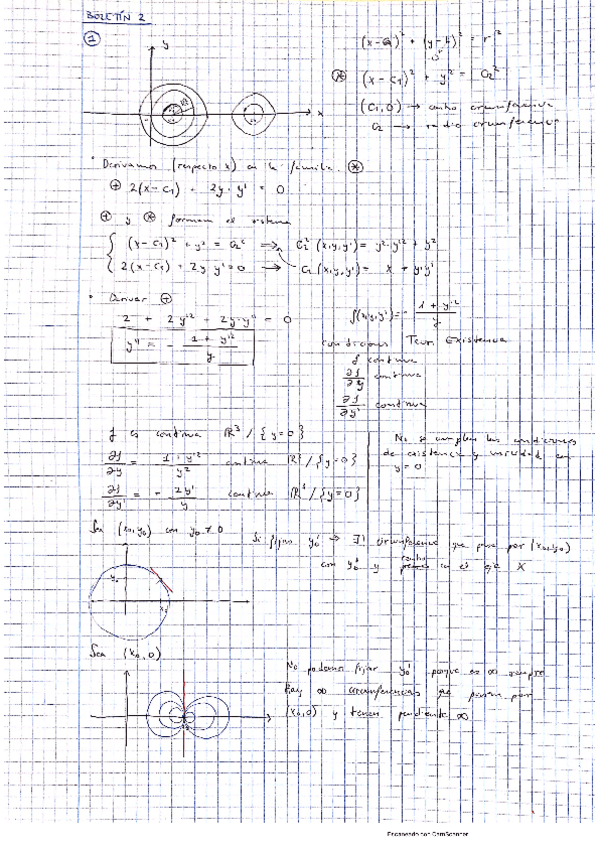 BOLETÍN 2
①
y
x
(x-a)² + (y-b)² = r²
⊛ (x-C₁)² + y² = C₂²
(C₁,0) → centro circunferencia
C₂ → radio circunferencia
• Derivamos (respecto x) en la familia ⊛
⊕ 2(x-C₁) + 2y·y' = 0
⊕ y ⊛ forman el sistema
(x-C₁)² + y² = C₂² → C₂²(x,y,y') = y²·y'² + y²
2(x-C₁) + 2y y' = 0 → C₁(x,y,y') = x + y·y'
• Derivar ⊕
2 + 2y'² + 2y·y'' = 0
y'' = - (1 + y'²)/y
f(x,y,y') = - (1 + y'²)/y
condiciones Teor. Existencia
f continua
∂f/∂y continua
∂f/∂y' continua
f es continua ℝ³/{y=0}
∂f/∂y = (1 + y'²)/y² continua ℝ³/{y=0}
∂f/∂y' = - 2y'/y continua ℝ³/{y=0}
No se cumplen las condiciones
de existencia y unicidad en
y=0
Sea (x₀,y₀) con y₀ ≠ 0
Si fijas y₀' → ∃! circunferencia que pasa por (x₀,y₀)
con y₀' y centro en el eje X
y₀
x₀
Sea (x₀,0)
No podemos fijar y₀' porque es ∞ siempre
Hay ∞ circunferencias que pasan por
(x₀,0) y tienen pendiente ∞
Escaneado con CamScanner